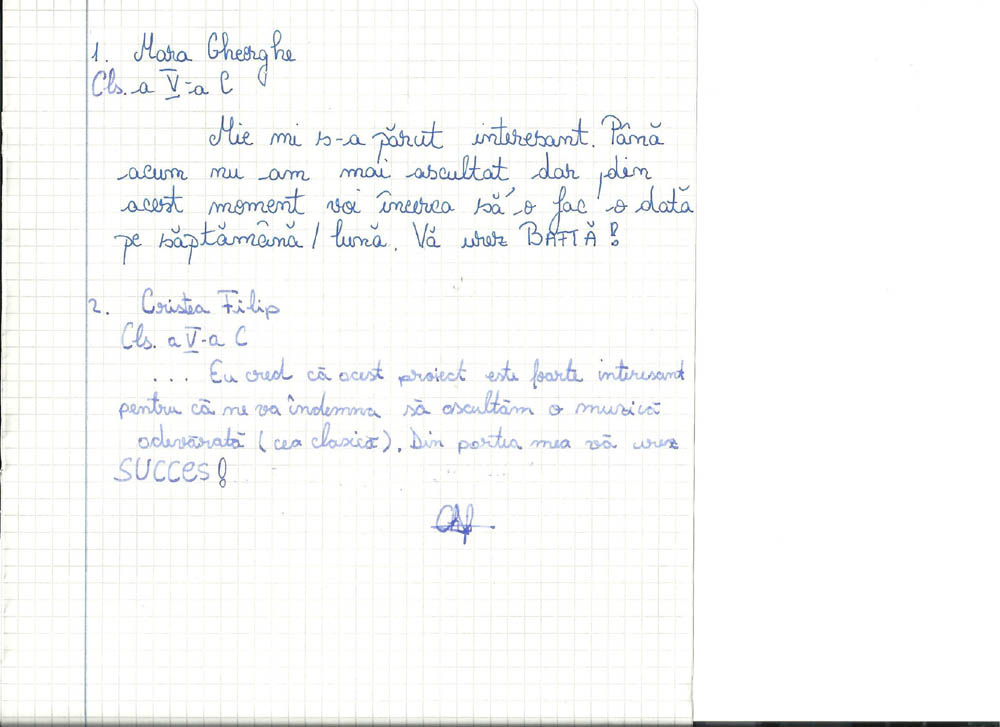 1. Mara Gheorghe
Cls. a V-a C
Mie mi s-a părut interesant. Până
acum nu am mai ascultat dar, din
acest moment voi încerca să o fac o dată
pe săptămână / lună. Vă urez BAFTĂ!
2. Cristea Filip
Cls. a V-a C
... Eu cred că acest proiect este foarte interesant
pentru că ne va îndemna să ascultăm o muzică
adevărată (cea clasică). Din partea mea vă urez
SUCCES!